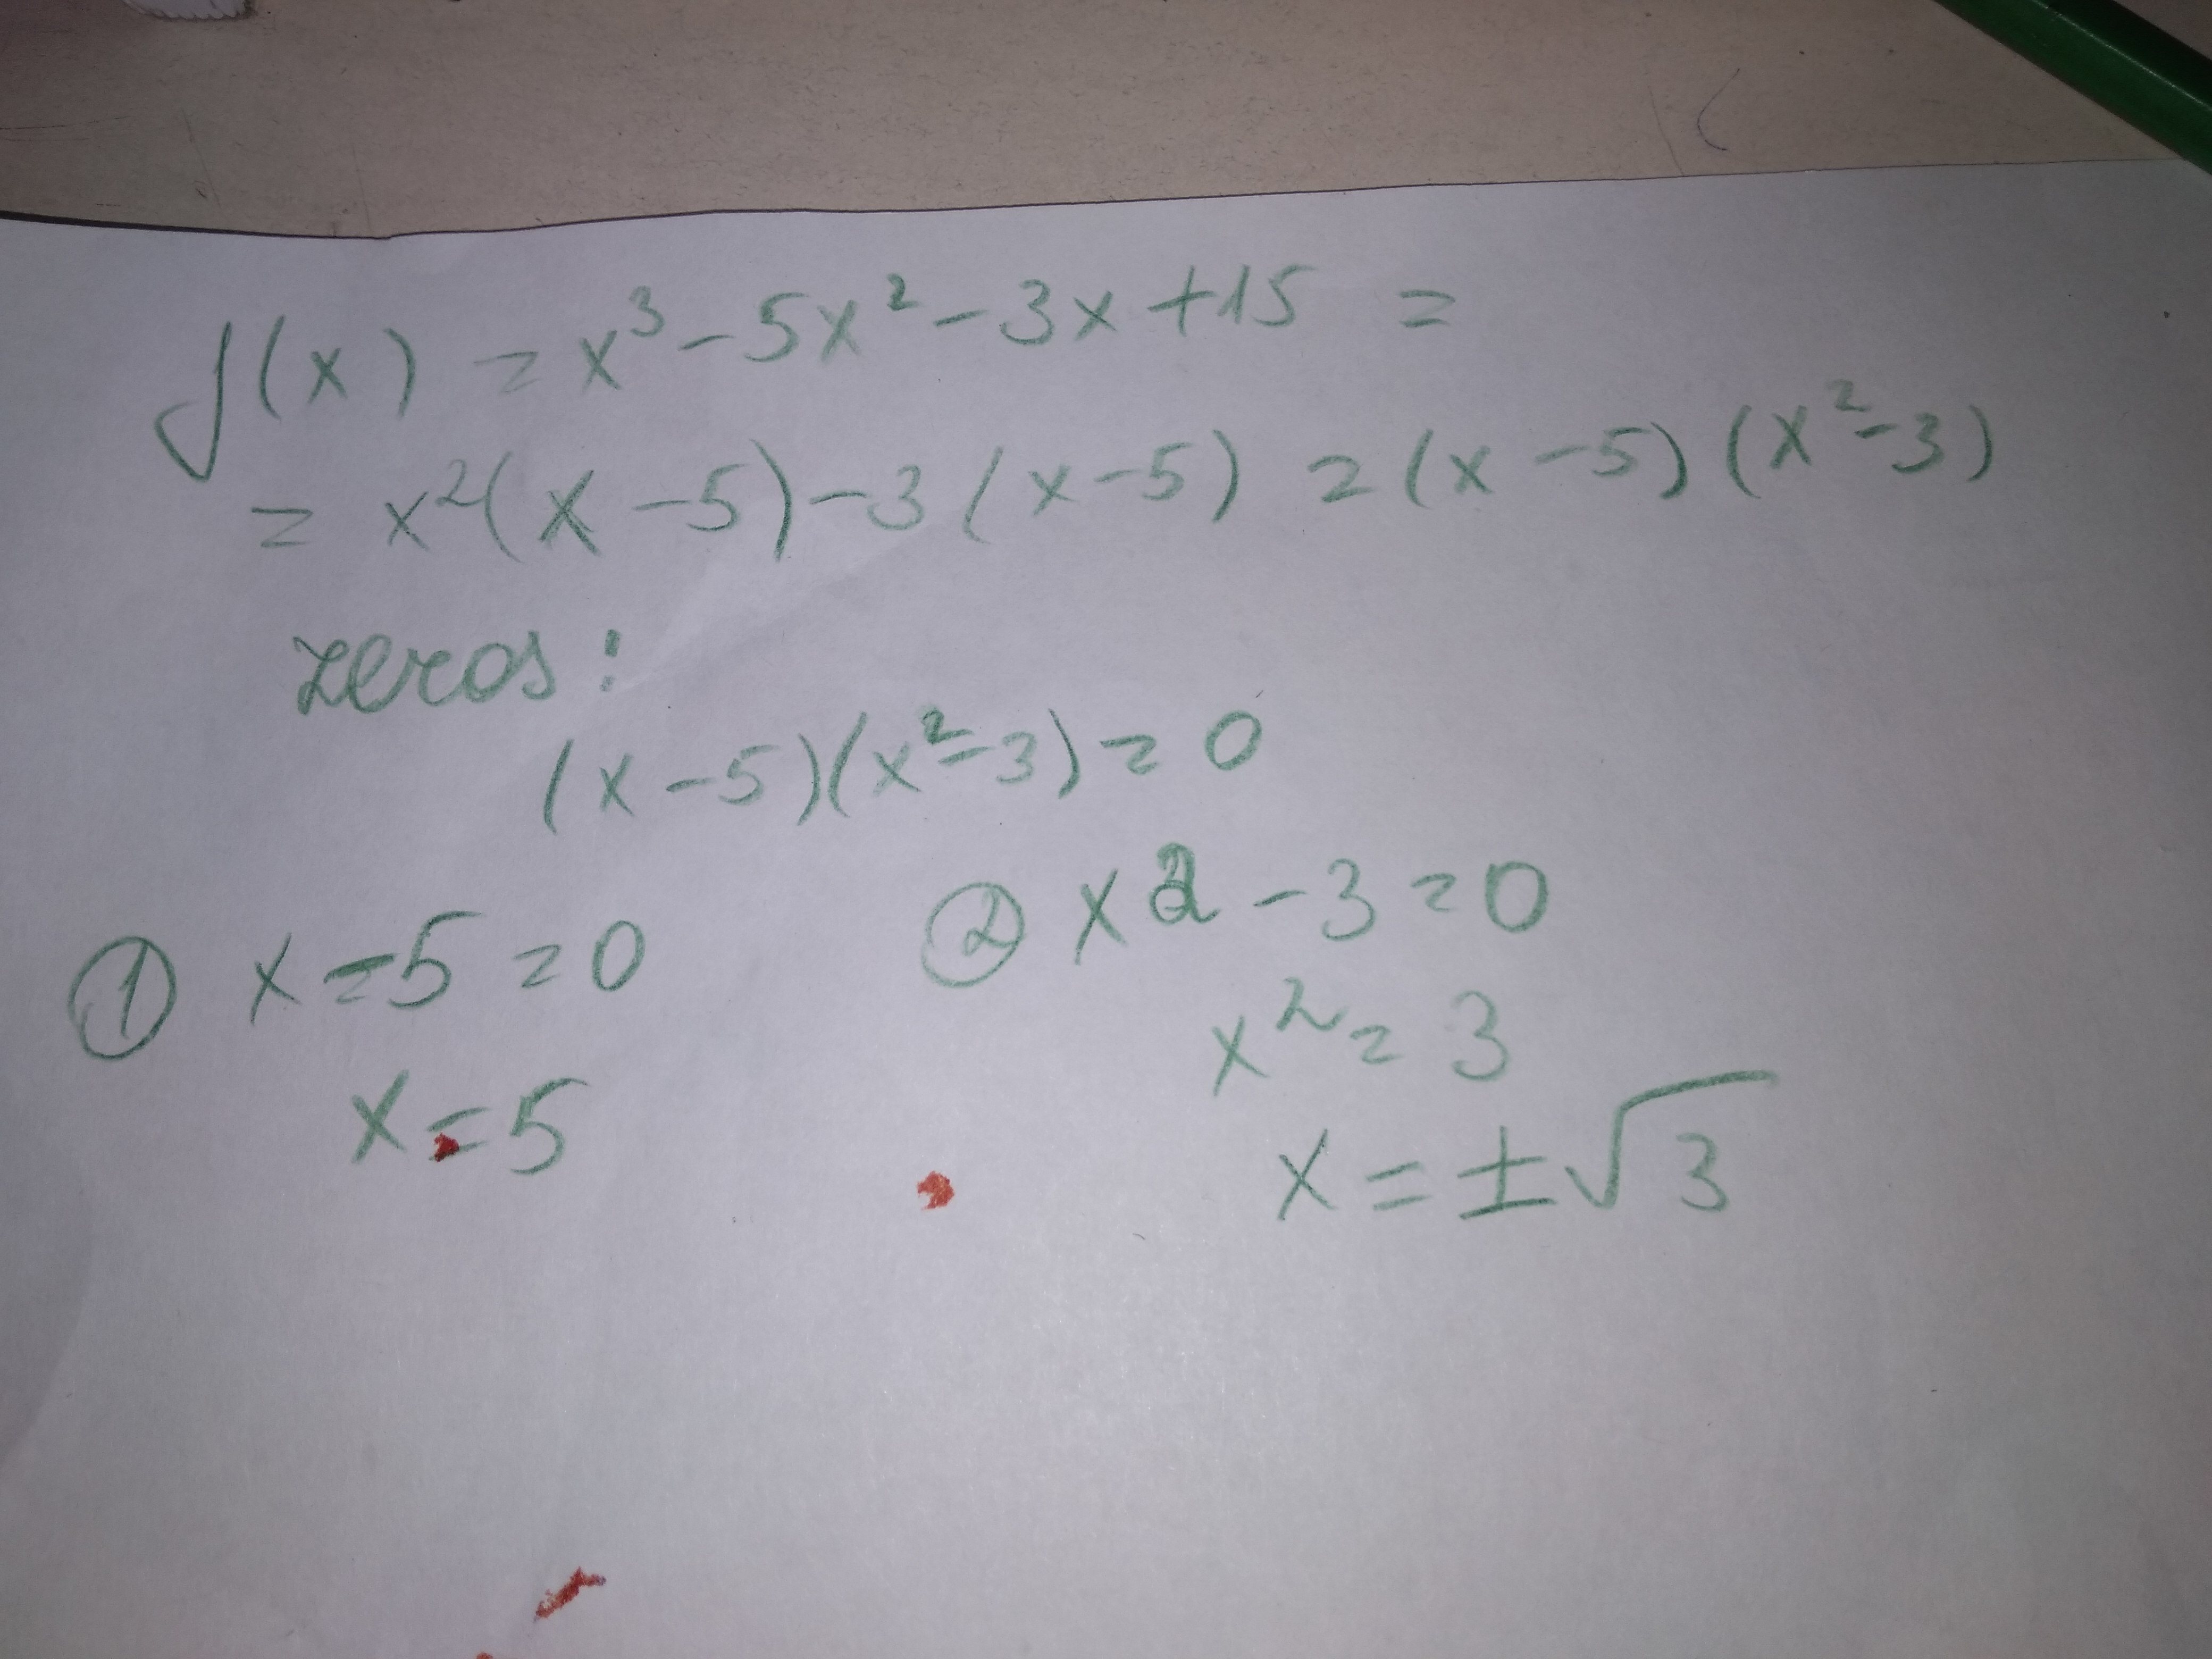 f(x) = x³ - 5x² - 3x + 15 =
= x²(x - 5) - 3(x - 5) = (x - 5)(x² - 3)
zeros:
(x - 5)(x² - 3) = 0
① x - 5 = 0
x = 5
② x² - 3 = 0
x² = 3
x = ±√3